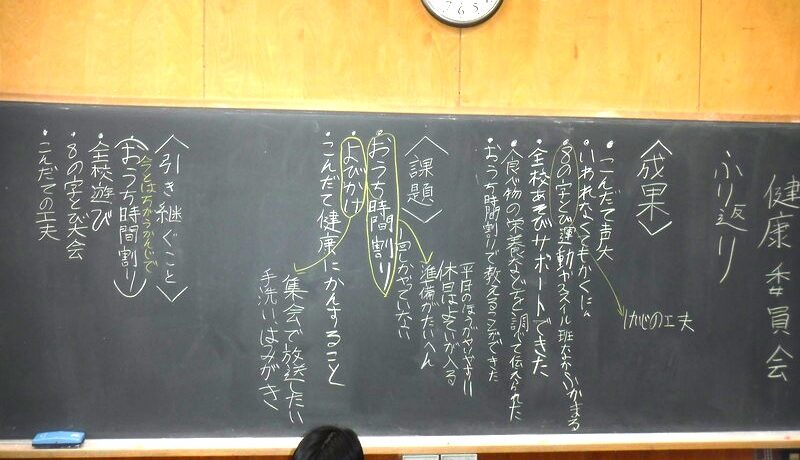 健康委員会
ふり返り
〈成果〉
・こんだて声大
・いわれなくてもかくにん
けいじの工夫
・8の字とび運動やスマイル班なかがふかまる
・全校あそびサポートできた
・食べ物の栄養などを調べて伝えられた
・おうち時間割りで教えることができた
〈課題〉
・おうち時間割り
一回しかやっていない
平日のほうがやりやすい
休日はよていが入る
準備がたいへん
・よびかけ
集会で放送したい
手洗いはみがき
・こんだて健康にかんすること
〈引き継ぐこと〉
今とはちがうかんじで
(おうち時間割り)
・全校遊び
・8の字とび大会
・こんだての工夫